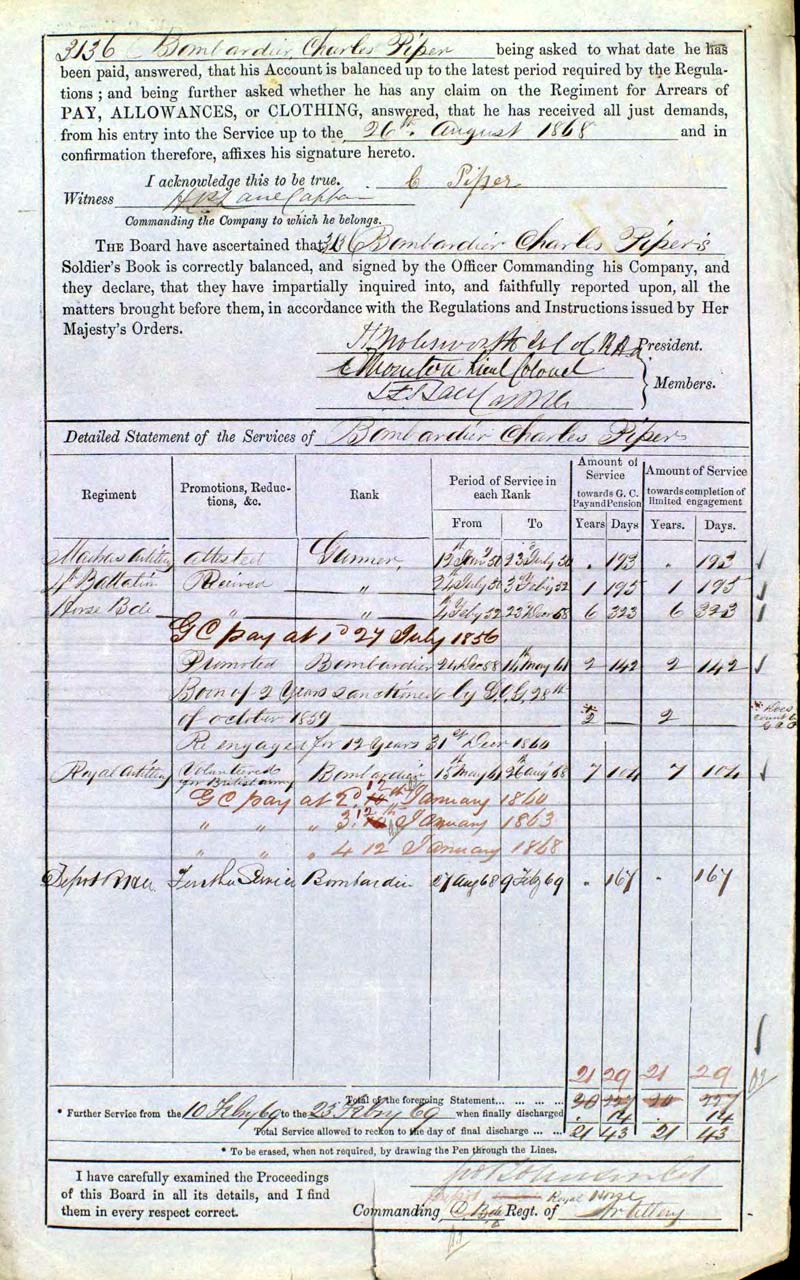 3136 Bombardier Charles Piper being asked to what date he has
been paid, answered, that his Account is balanced up to the latest period required by the Regula-
tions ; and being further asked whether he has any claim on the Regiment for Arrears of
PAY, ALLOWANCES, or CLOTHING, answered, that he has received all just demands,
from his entry into the Service up to the 26th. August 1868 and in
confirmation therefore, affixes his signature hereto.
I acknowledge this to be true. C Piper
Witness
Commanding the Company to which he belongs.
THE Board have ascertained that 3136 Bombardier Charles Piper's
Soldier's Book is correctly balanced, and signed by the Officer Commanding his Company, and
they declare, that they have impartially inquired into, and faithfully reported upon, all the
matters brought before them, in accordance with the Regulations and Instructions issued by Her
Majesty's Orders.
President.
Lieut Colonel
Members.
Detailed Statement of the Services of Bombardier Charles Piper
Regiment Promotions, Reduc-tions, &c. Rank Period of Service in each Rank Amount of Service towards G. C. Pay and Pension Amount of Service towards completion of limited engagement
From To Years Days Years. Days.
Madras Artillery attested Gunner 12th Jany 50 23d July 50 " 193 " 193
4th Battalion Received " 24th July 50 3d Feby 52 1 195 1 195
Horse Bde " " 4th Feby 52 23d Decr 58 6 323 6 323
GC pay at 1d 27 July 1856
Promoted Bombardier 24 Dec 58 14th May 61 2 142 2 142
Boon of 2 Years sanctioned by G.O.G. 28th
of october 1859 2 2
Re engaged for 12 years 31st Decr 1860
Royal Artillery Volunteered for British Army Bombardier 15th May 61 26 Augt 68 7 104 7 104
GC pay at 2d. 12th January 1860
" " " 3. 12th January 1863
" " " 4 12 January 1868
Depot Bde Further Service Bombardier 27 Aug 68 9 Feby 69 " 167 " 167
21 29 21 29
Total of the foregoing Statement... ... ... ... 20 227 20 227
* Further Service from the 10 Feby 69 to the 23 Feby 69 when finally discharged . 14 . 14
Total Service allowed to reckon to the day of final discharge ... ... 21 43 21 43
* To be erased, when not required, by drawing the Pen through the Lines.
I have carefully examined the Proceedings
of this Board in all its details, and I find
them in every respect correct.
Royal Horse
Commanding Regt. of Artillery